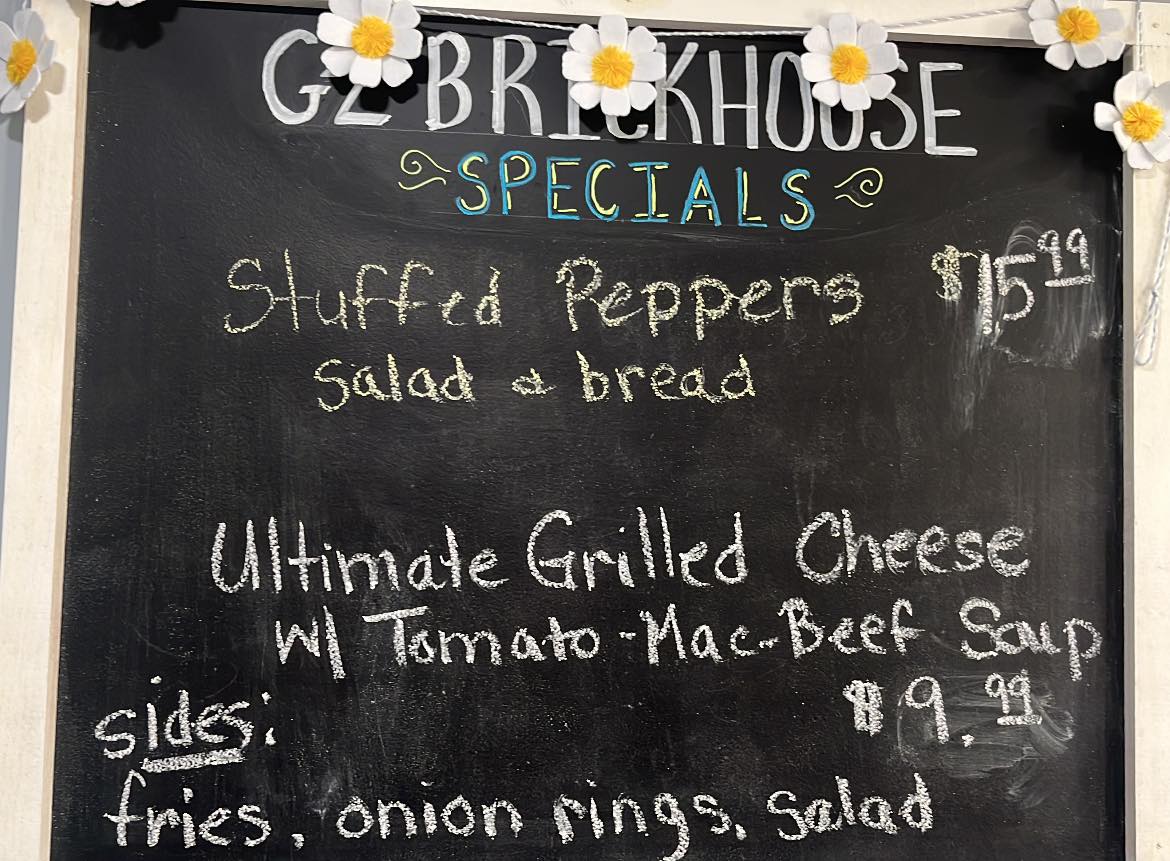 GZ BRICKHOUSE
SPECIALS
Stuffed Peppers $15.99
salad & bread
Ultimate Grilled Cheese
W/ Tomato-Mac-Beef Soup
$9.99
sides:
fries, onion rings, salad